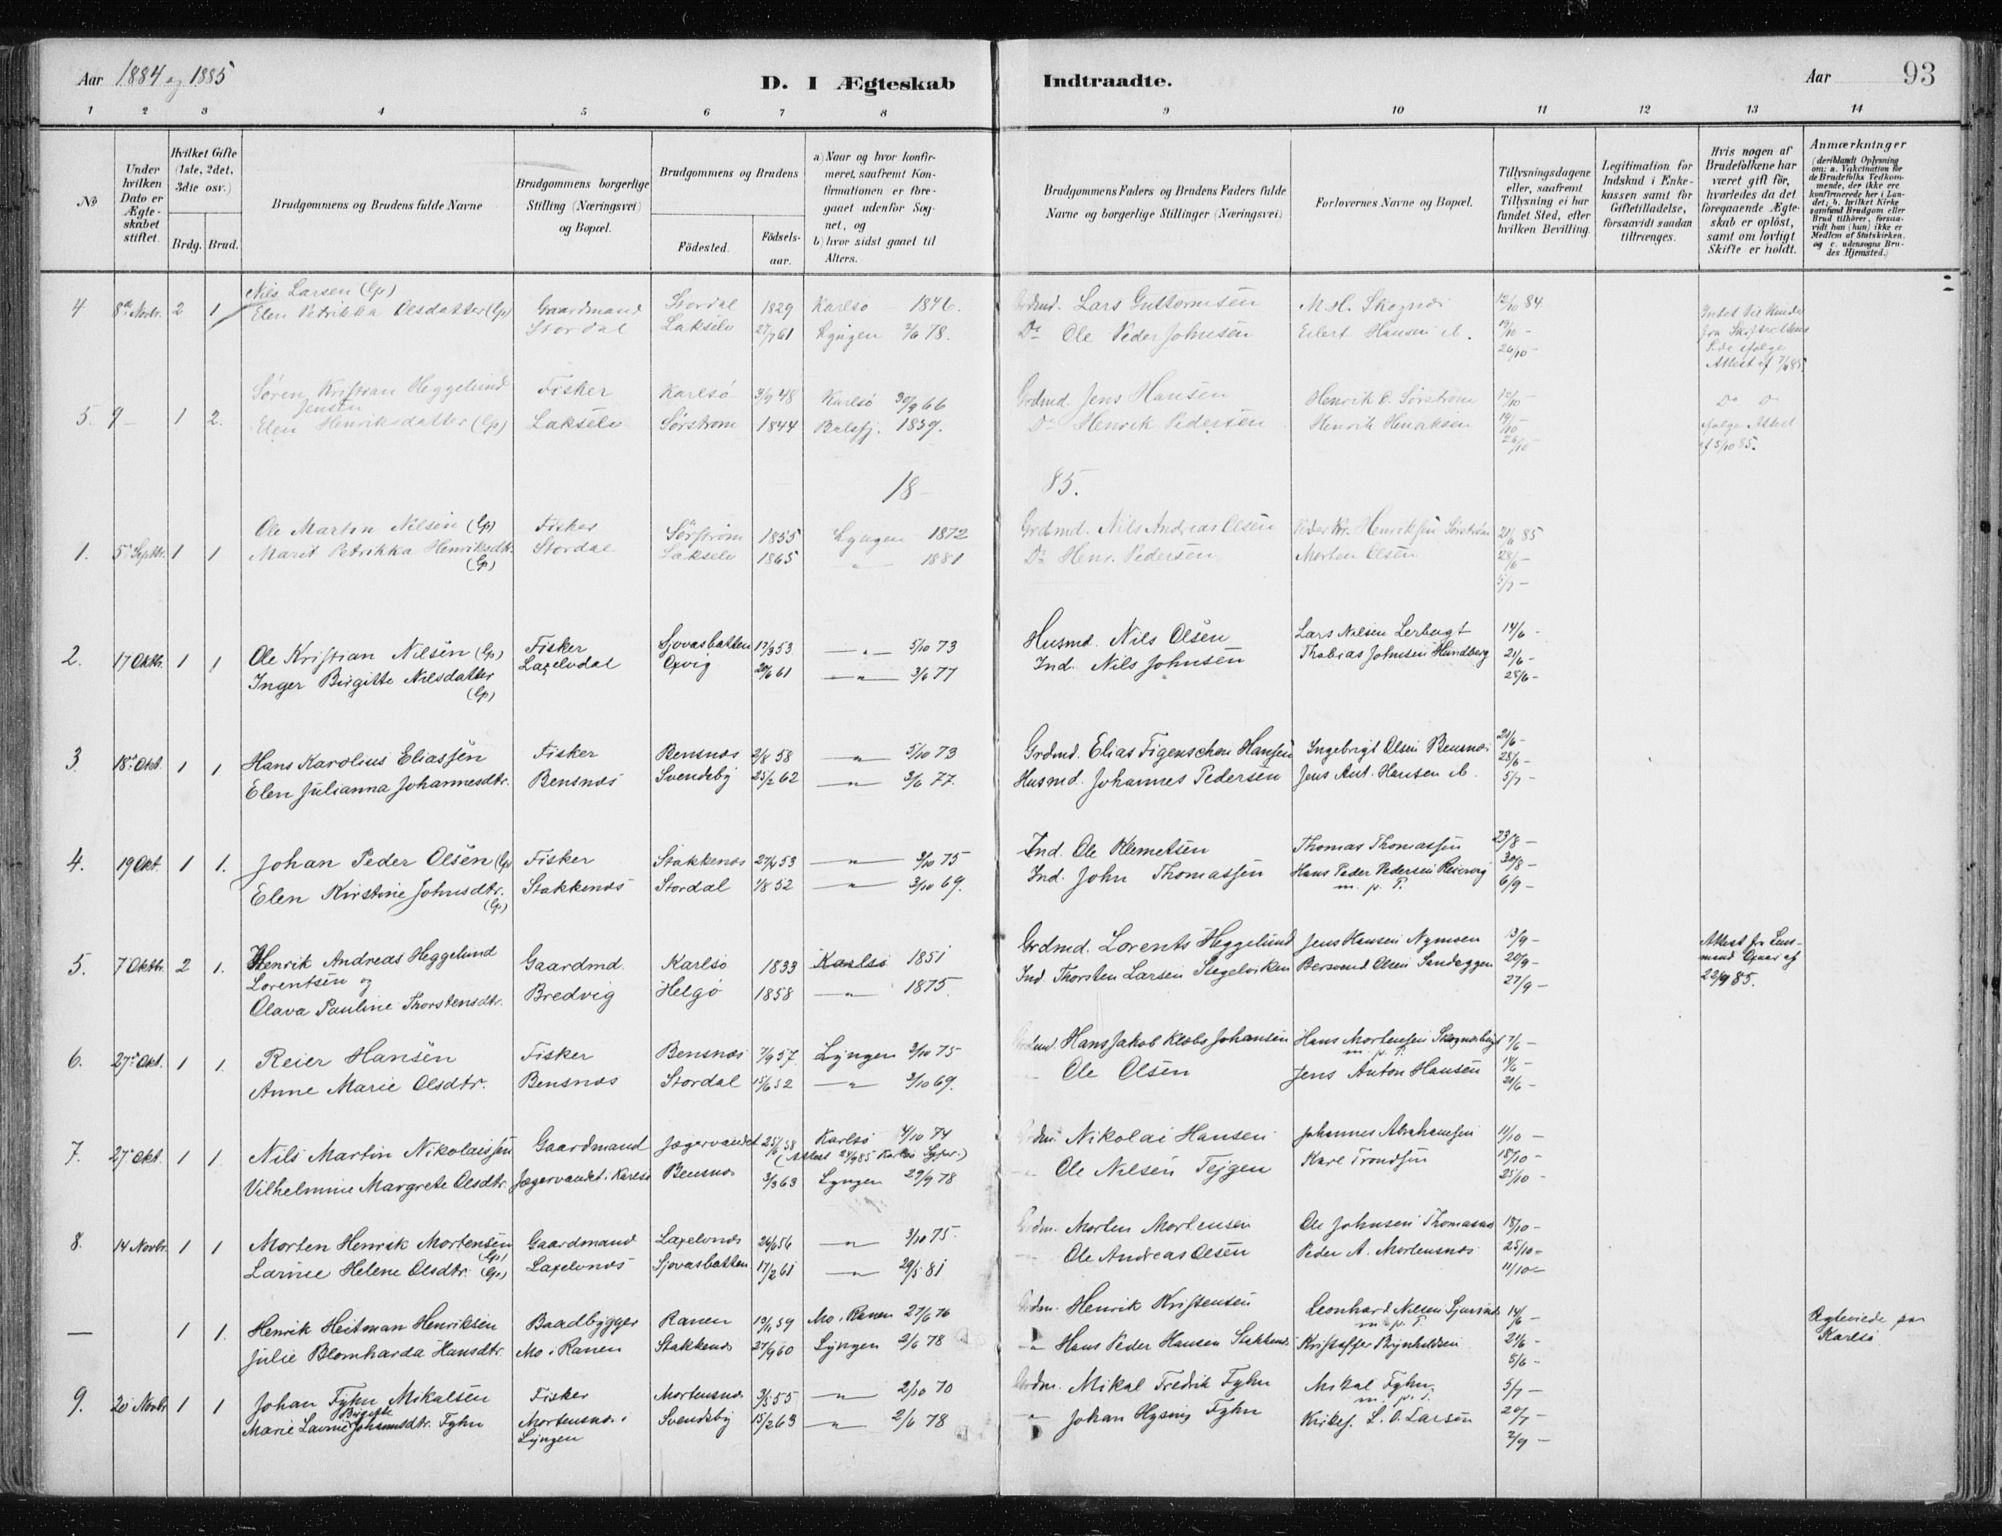 Aar 1884 og 1885
D. I Ægteskab Indtraadte.
Aar 93
1 2 3 4 5 6 7 8 9 10 11 12 13 14
No
Under hvilken Dato er Ægteskabet stiftet.
Hvilket Gifte (1ste, 2det, 3die osv.)
Brdg. Brud.
Brudgommens og Brudens fulde Navne
Brudgommens borgerlige Stilling (Næringsvei) og Bopæl.
Brudgommens og Brudens
Fødested. Fødsels-aar.
a) Naar og hvor konfirmeret, saafremt Konfirmationen er foregaaet udenfor Sognet, og
b) hvor sidst gaaet til Alters.
Brudgommens Faders og Brudens Faders fulde Navne og borgerlige Stillinger (Næringsvei)
Forlovernes Navne og Bopæl.
Tillysningsdagene eller, saafremt Tillysning ei har fundet Sted, efter hvilken Bevilling.
Legitimation for Indskud i Enkekassen samt for Giftetilladelse, forsaavidt saadan tiltrænges.
Hvis nogen af Brudefolkene har været gift før, hvorledes da det foregaaende Ægteskab er opløst, samt om lovligt Skifte er holdt.
Anmærkninger (deriblandt Oplysning om: a. Vakcination for de Brudefolks Vedkommende, der ikke ere konfirmerede her i Landet; b. hvilket Kirkesamfund Brudgom eller Brud tilhører, forsaavidt han (hun) ikke er Medlem af Statskirken, og c. udensogns Brudes Hjemsted.)
4 8de Novbr. 2 1 Nils Larsen (Gp) Gaardmand Stordal 1829 Karlsø 1846. Grdmd. Lars Guttormsen M. H. 12/10 84
Elen Petrikka Olsdatter (Gp) Stordal Lakselv 27/7 61 Lyngen 2/6 78. Do Ole Peder Johnsen Eilert Hansen ib. 19/10 –
26/10 –
Attest af 7/6 85
5. 9 – 1 2. Søren Kristian Heggelund Jensen Fisker Karlsø 3/9 48 Karlsø 30/9 66 Grdmd. Jens Hansen Henrik P. Sørstrøm 12/10 – Do Do
Elen Henriksdatter (Gp) Lakselv Sørstrøm 1844 Balsfj. 1859. Do Henrik Pedersen Henrik Henriksen 19/10 – ifølge Attest
26/10 af 5/10 85.
18 – 85.
1. 5te Septbr. 1 1 Ole Martin Nilsen (Gp) Fisker Sørstrøm 1855 Lyngen 1872 Grdmd. Nils Andreas Olsen Peder Kr. Henriksen Sørstrøm 21/6 85
Marit Petrikka Henriksdtr. (Gp) Stordal Lakselv 1865 " 1881 Do Henr. Pedersen Morten Olsen 28/6 –
5/7 –
2. 17 Oktbr. 1 1 Ole Kristian Nilsen (Gp) Fisker Sjovasbatten 17/3 53 " 5/10 73 Husmd. Nils Olsen Lars Nilsen Lerbugt 14/6 –
Inger Birgitte Nilsdatter (Gp) Laxelvdal Oxvig 20/6 61 " 3/6 77 Ind. Nils Johnsen Thobias Johnsen Hundberg 21/6 –
28/6 –
3 18de Okt. 1 1 Hans Karolius Eliassen Fisker Bensnæs 2/8 58 " 5/10 73 Grdmd. Elias Figenschou Hansen Ingebrigt Olsen Bensnæs 21/6 –
Elen Julianna Johannesdtr. Bensnæs Svendsby 25/2 62 " 3/6 77. Husmd. Johannes Pedersen Jens Ant. Hansen ib. 28/6 –
5/7 –
4. 19 Okt. 1 1. Johan Peder Olsen (Gp) Fisker Stakkenæs 27/4 53 " 3/10 75 Ind. Ole Klemetsen Thomas Thomassen 23/8 –
Elen Kirstine Johnsdtr. (Gp) Stakkenæs Stordal 1/8 52 " 3/10 69. Ind. John Thomassen Hans Peder Pedersen Reiervig 30/8 –
m. p. P. 6/9 –
5. 7 Oktbr. 2 1. Henrik Andreas Heggelund Lorentsen og Gaardmd. Karlsø 1833 Karlsø 1851 Grdmd. Lorents Heggelund Jens Hansen Nymoen 13/9 – Attest fra Lensmand
Olava Pauline Thorstensdtr. Bredvig Helgø 1858 " 1875. Ind. Thorsten Larsen Stegelviken Bersvend Olsen Sandeggen 20/9 –
27/9 – 22/9 85.
6. 27de Okt. 1 1. Reier Hansen Fisker Bensnæs 7/9 57. Lyngen 3/10 75 Grdmd. Hans Jakob Klæbo Johansen Hans Mortensen 7/6 –
m. p. P.
Anne Marie Olsdtr. Bensnæs Stordal 15/6 52 " 3/10 69. Ole Olsen Jens Anton Hansen 14/6 –
21/6 –
7. 27de Okt. 1 1 Nils Martin Nikolaissen Gaardmand Jægervandet 25/6 58 Karlsø 4/10 74 Grdm. Nikolai Hansen Johannes Abrahamsen 11/10 –
(Attest 24/9 85 Karlsø)
Vilhelmine Margrete Olsdtr. Jægervandet i Karlsø Bensnæs 3/3 63 Lyngen 29/9 78 Ole Nilsen Tejgen Karl Trondsen 18/10 –
25/10 –
8. 14 Novbr. 1 1 Morten Henrik Mortensen (Gp) Gaardmand Laxelvnæs 24/6 56 " 3/10 75. Grdm. Morten Mortensen Ole Johnsen Thomasnæs 18/10 –
Larine Helene Olsdtr. (Gp) Laxelvnæs Sjovasbatten 17/2 61 " 29/5 81 Ole Andreas Olsen Peder A. Mortensnæs 25/10 –
11/10 –
— 1 1. Henrik Heitman Henriksen Baadbygger Ranen 19/11 59 Mo i Ranen 27/6 76 Grdm. Henrik Kristensen Leonhard Nilsen 14/6 – Ægteviede paa Karlsø
m. p. P.
Julie Blomharda Hansdtr. Mo i Ranen Stakkenæs 27/9 60 Lyngen 2/6 78 " Hans Peder Hansen Stakkenæs Kristoffer Brynhildsen 21/6 –
5/6 –
9. 20 Novbr. 1 1 Johan Fyhn Mikalsen Fisker Mortensnæs 3/5 55 " 2/10 70 Grdm. Mikal Fredrik Fyhn Mikal Fyhn 5/7 –
m. p. P.
Marie Lavine Birgitte Johannsdtr. Fyhn Mortensnæs i Lyngen Svendsby 15/2 63 " 2/6 78 " Johan Hysing Fyhn Kirkes. L. O. Larsen 20/7 –
2/9 –